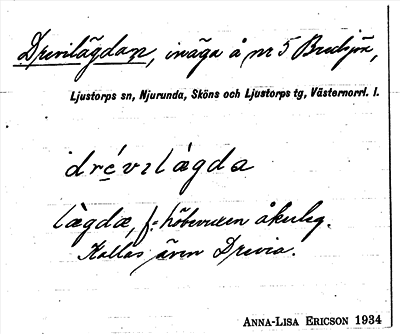 Drevilägdan, inäga å nr 5 Bredsjön,
Ljustorps sn, Njurunda, Sköns och Ljustorps tg, Västernorrl. l.
drévılàgda
làgda, f. = höbevuxen åkerleg.
Kallas även Drevia.
ANNA-LISA ERICSON 1934